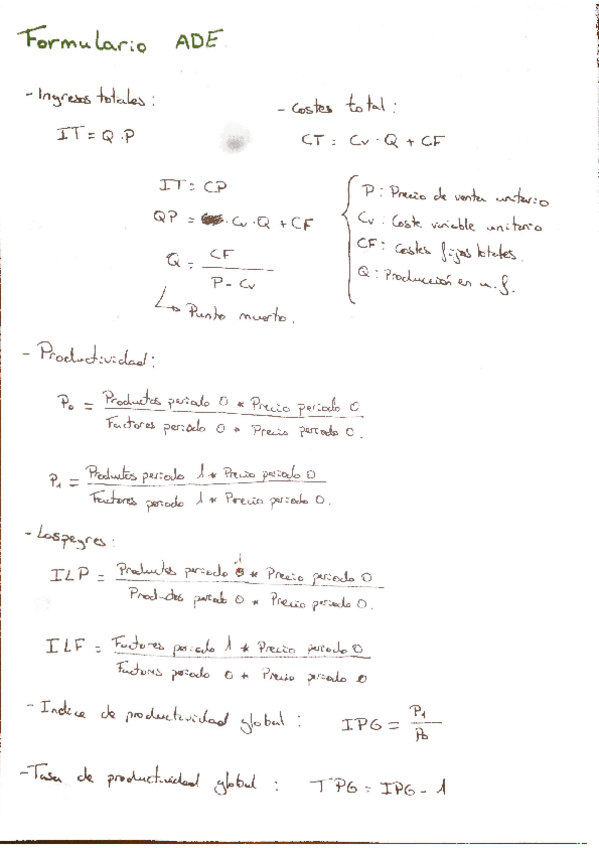 Formulario ADE
- Ingresos totales:
IT = Q · P
- Costes total:
CT = Cv · Q + CF
IT = CP
QP = Cv · Q + CF
Q = CF / P - Cv
↳ Punto muerto.
P: Precio de venta unitario
Cv: Coste variable unitario
CF: Costes fijos totales.
Q: Producción en u.f.
- Productividad:
P0 = Productos periodo 0 * Precio periodo 0
Factores periodo 0 * Precio periodo 0.
P1 = Productos periodo 1 * Precio periodo 0
Factores periodo 1 * Precio periodo 0.
- Laspeyres:
ILP = Productos periodo 1 * Precio periodo 0
Productos periodo 0 * Precio periodo 0.
ILF = Factores periodo 1 * Precio periodo 0
Factores periodo 0 * Precio periodo 0
- Indice de productividad global: IPG = P1 / P0
- Tasa de productividad global: TPG = IPG - 1